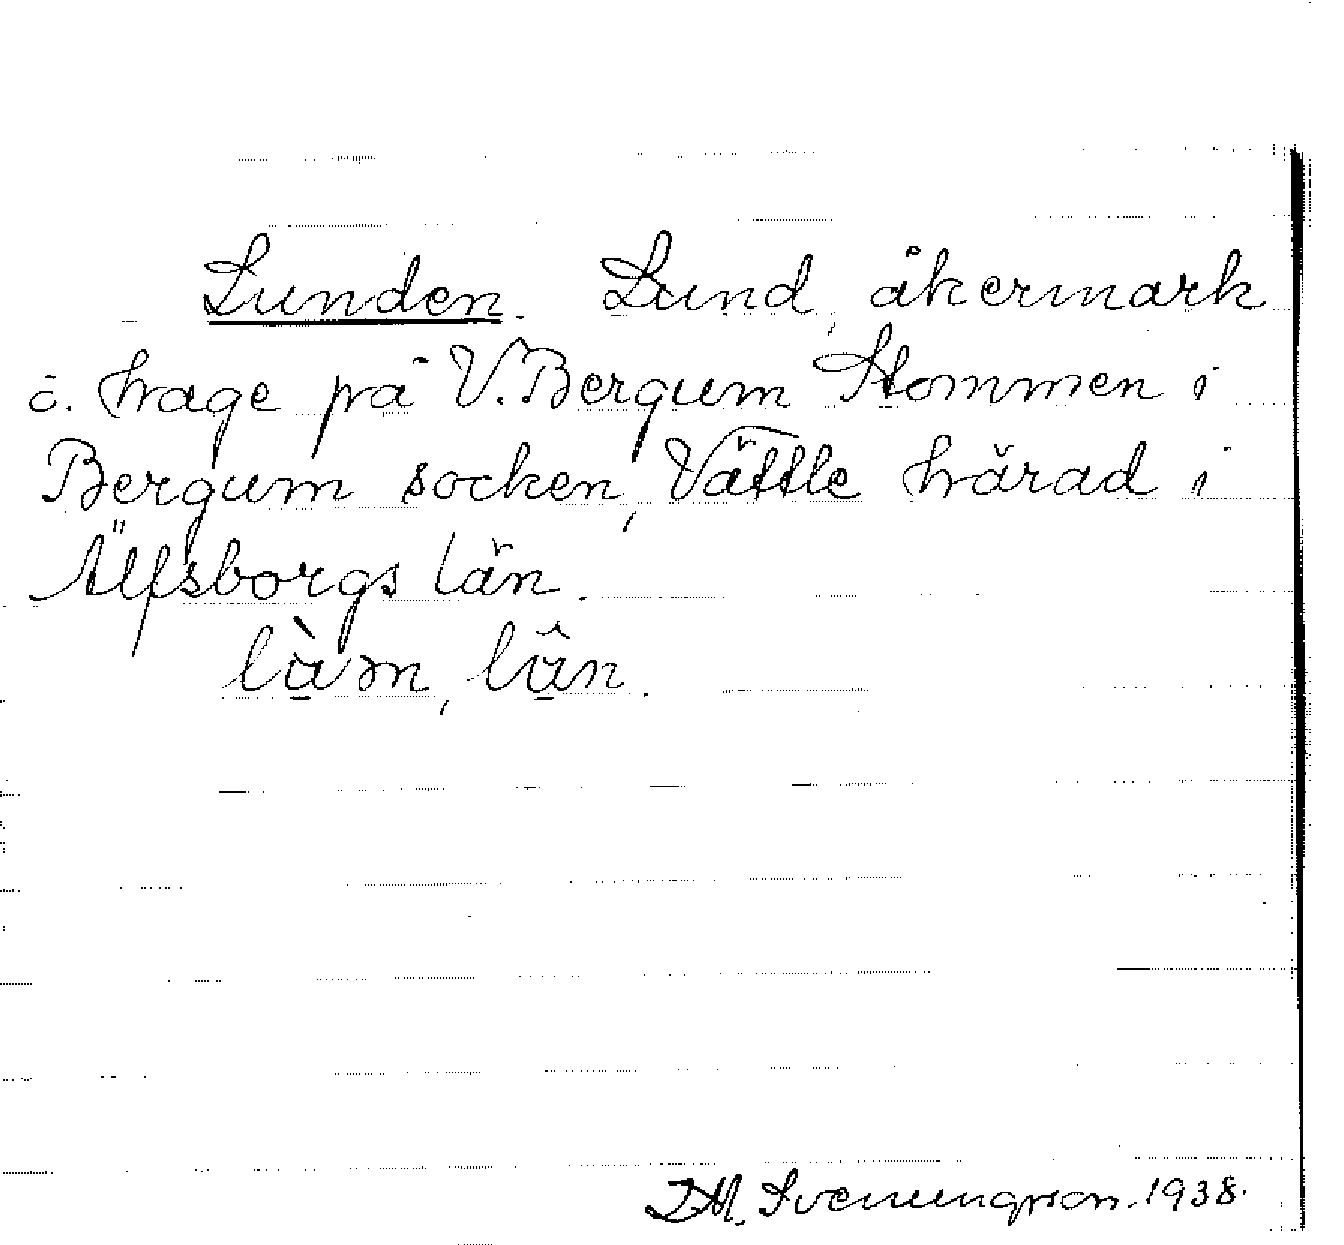 Lunden. Lund, åkermark
o. hage på V. Bergum Stommen i
Bergum socken, Vättle härad i
Älfsborgs län.
Svenungsson. 1938.